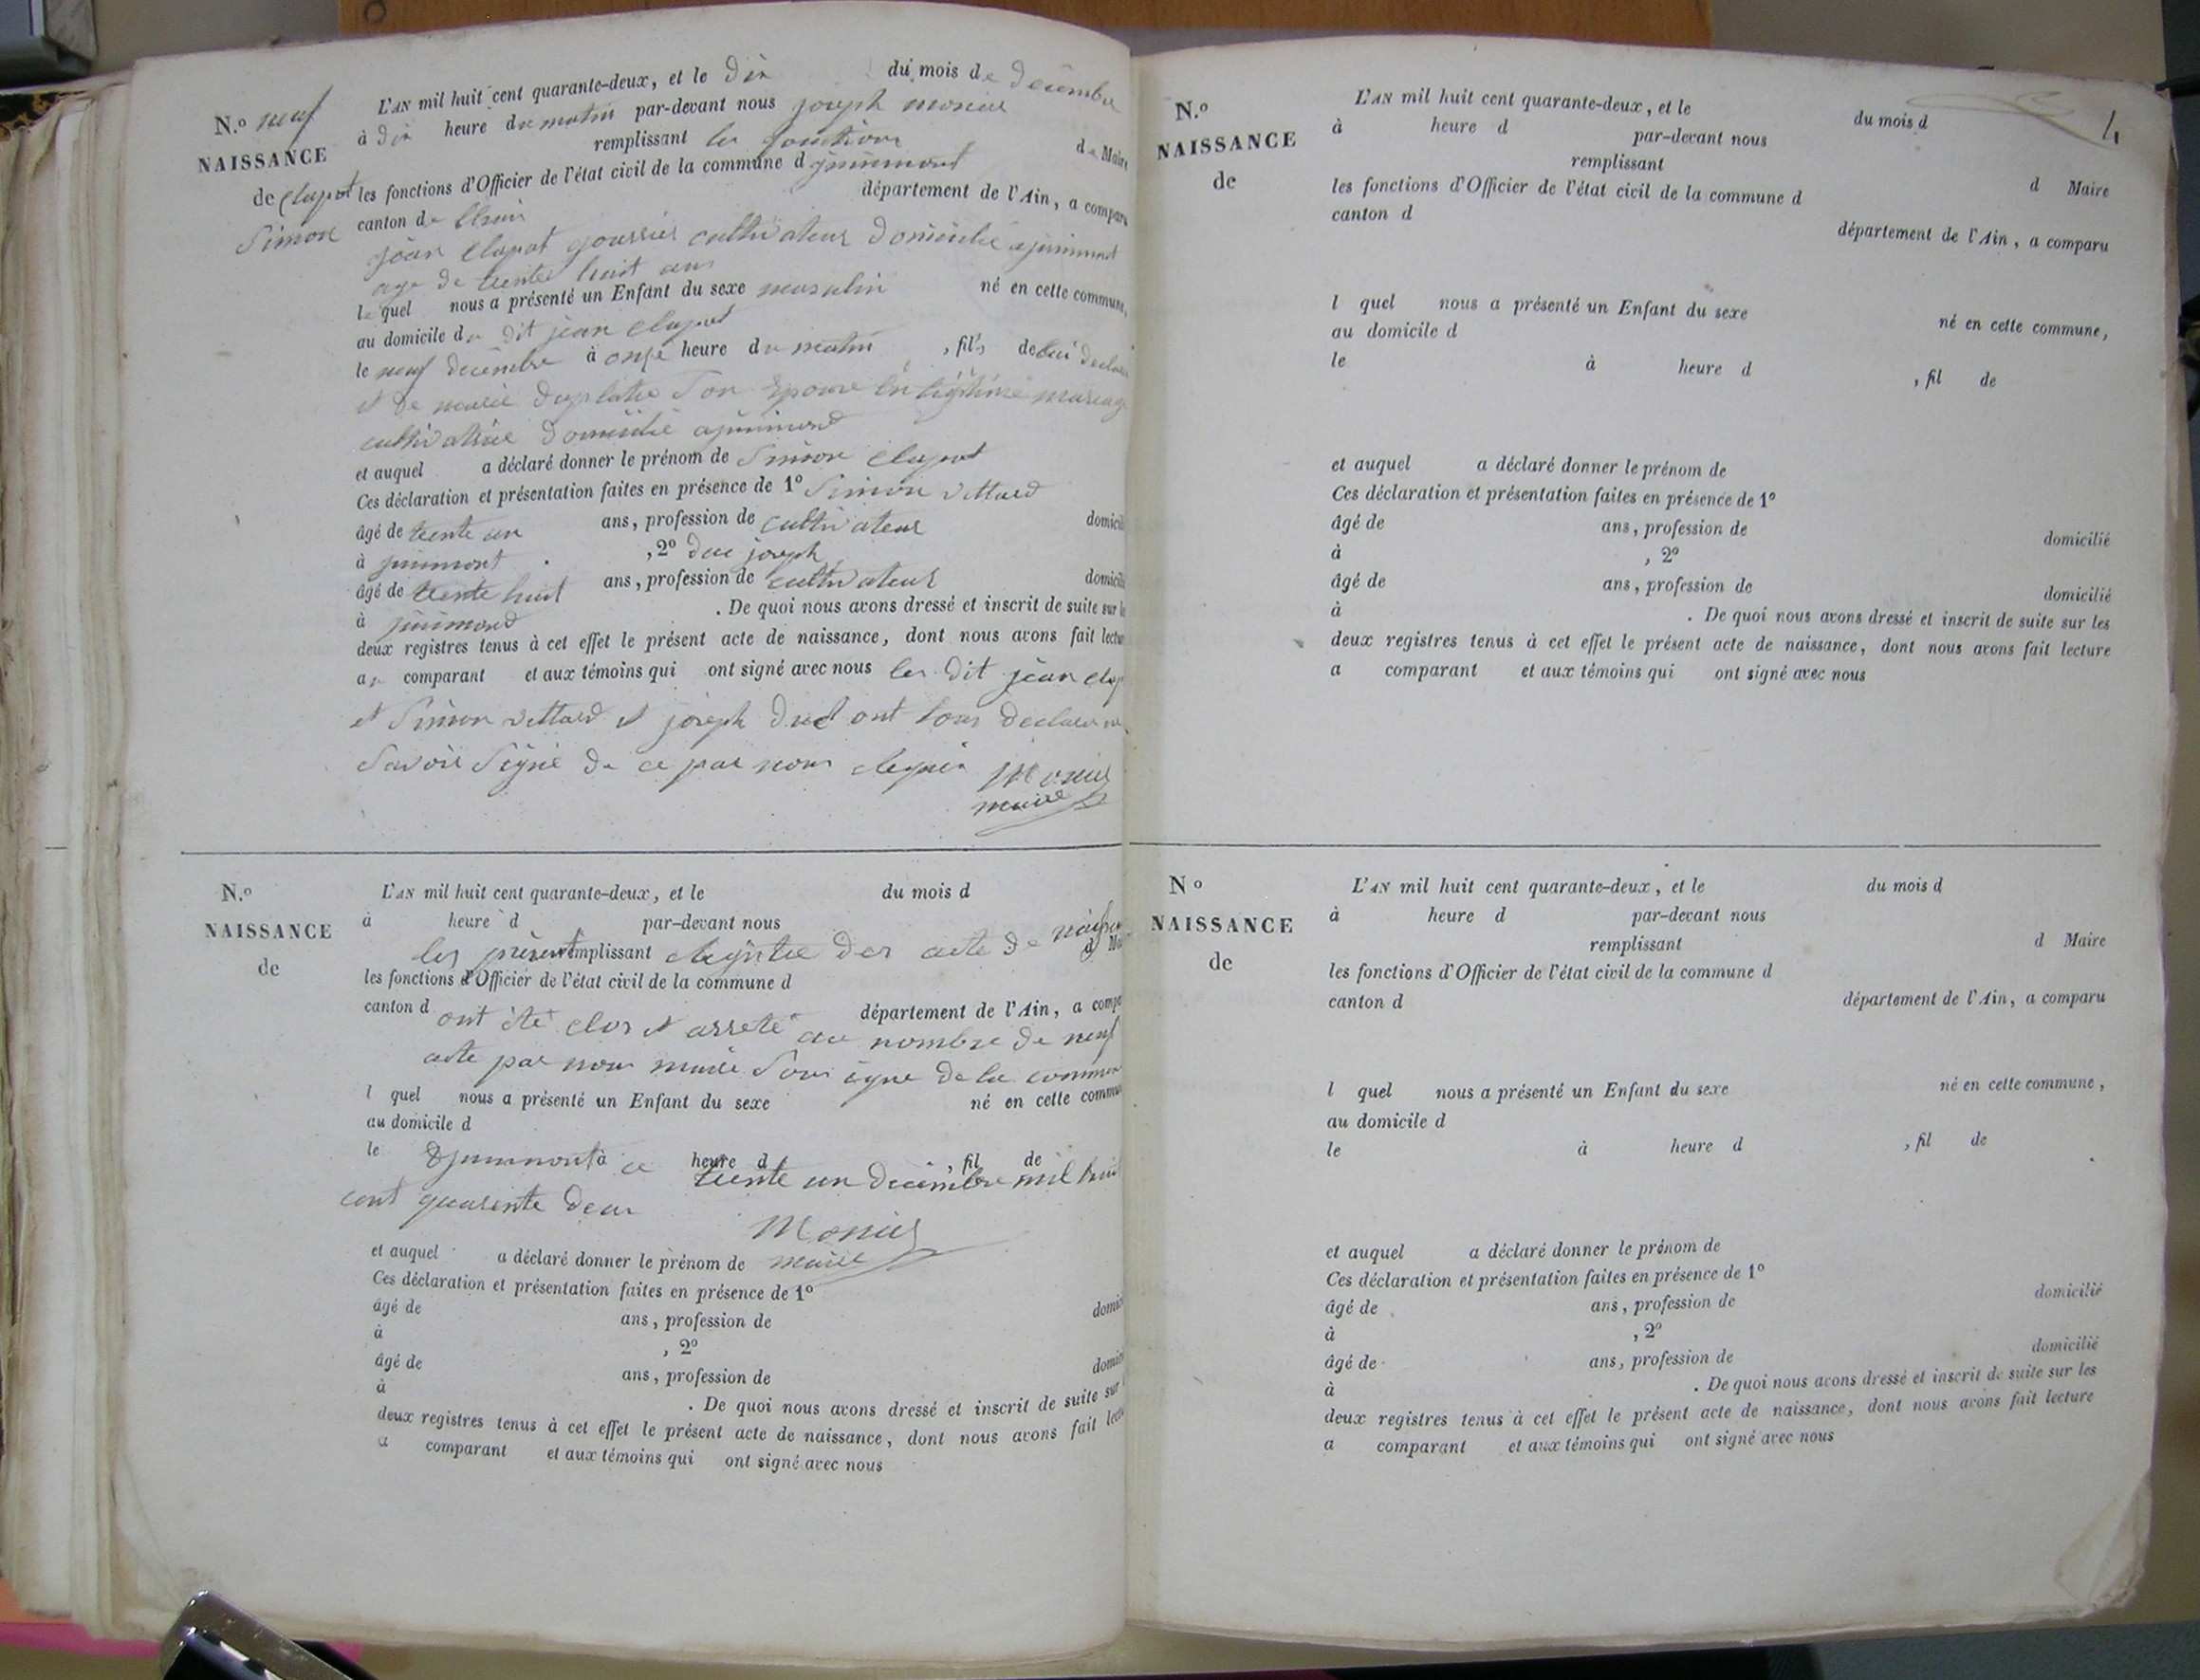 N.º neuf
NAISSANCE
de Clapot
Simon
L'AN mil huit cent quarante-deux, et le dix du mois de décembre
à dix heure du matin par-devant nous joseph monier
remplissant les fonctions de Maire
les fonctions d'Officier de l'état civil de la commune d
canton de département de l'Ain, a comparu
jean Clapot cultivateur domicilié a
age de trente huit ans
le quel nous a présenté un Enfant du sexe masculin né en cette commune,
au domicile du dit jean Clapot
le neuf decembre à onze heure du matin , fils de lui
et de marie son epouse en légitime mariage
cultivatrice domicilié a
et auquel a déclaré donner le prénom de Simon Clapot
Ces déclaration et présentation faites en présence de 1º Simon
âgé de trente un ans, profession de cultivateur domicil
à , 2º joseph
âgé de trente huit ans, profession de cultivateur domicil
à . De quoi nous avons dressé et inscrit de suite sur
deux registres tenus à cet effet le présent acte de naissance, dont nous avons fait lectu
au comparant et aux témoins qui ont signé avec nous les dit jean clap
et Simon et joseph ont tous declare ne
Savoir Signé de ce par nous requis Monier
maire
N.º
NAISSANCE
de
L'AN mil huit cent quarante-deux, et le du mois d
à heure d par-devant nous
les présent remplissant registre des acte de naissance d
les fonctions d'Officier de l'état civil de la commune d
canton d département de l'Ain, a comp
ont été clos et arreté au nombre de neuf
acte par nous maire Sous igne de la commun
l quel nous a présenté un Enfant du sexe né en cette commu
au domicile d
le à ce heure d , fil de
trente un decembre mil huit
cent quarente deux
Monier
et auquel a déclaré donner le prénom de maire
Ces déclaration et présentation faites en présence de 1º
âgé de ans, profession de domici
à , 2º
âgé de ans, profession de domici
à . De quoi nous avons dressé et inscrit de suite sur
deux registres tenus à cet effet le présent acte de naissance, dont nous avons fait lectu
a comparant et aux témoins qui ont signé avec nous
4
N.º
NAISSANCE
de
L'AN mil huit cent quarante-deux, et le du mois d
à heure d par-devant nous
remplissant d Maire
les fonctions d'Officier de l'état civil de la commune d
canton d département de l'Ain, a comparu
l quel nous a présenté un Enfant du sexe né en cette commune,
au domicile d
le à heure d , fil de
et auquel a déclaré donner le prénom de
Ces déclaration et présentation faites en présence de 1º
âgé de ans, profession de domicilié
à , 2º
âgé de ans, profession de domicilié
à . De quoi nous avons dressé et inscrit de suite sur les
deux registres tenus à cet effet le présent acte de naissance, dont nous avons fait lecture
a comparant et aux témoins qui ont signé avec nous
Nº
NAISSANCE
de
L'AN mil huit cent quarante-deux, et le du mois d
à heure d par-devant nous
remplissant d Maire
les fonctions d'Officier de l'état civil de la commune d
canton d département de l'Ain, a comparu
l quel nous a présenté un Enfant du sexe né en cette commune,
au domicile d
le à heure d , fil de
et auquel a déclaré donner le prénom de
Ces déclaration et présentation faites en présence de 1º
âgé de ans, profession de domicilié
à , 2º
âgé de ans, profession de domicilié
à . De quoi nous avons dressé et inscrit de suite sur les
deux registres tenus à cet effet le présent acte de naissance, dont nous avons fait lecture
a comparant et aux témoins qui ont signé avec nous